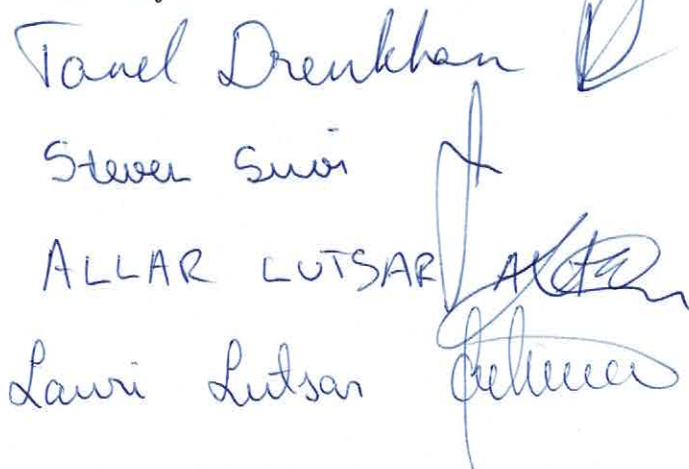 Tanel Drenkhan
Steven Suvi
ALLAR LUTSAR
Lauri Lutsar